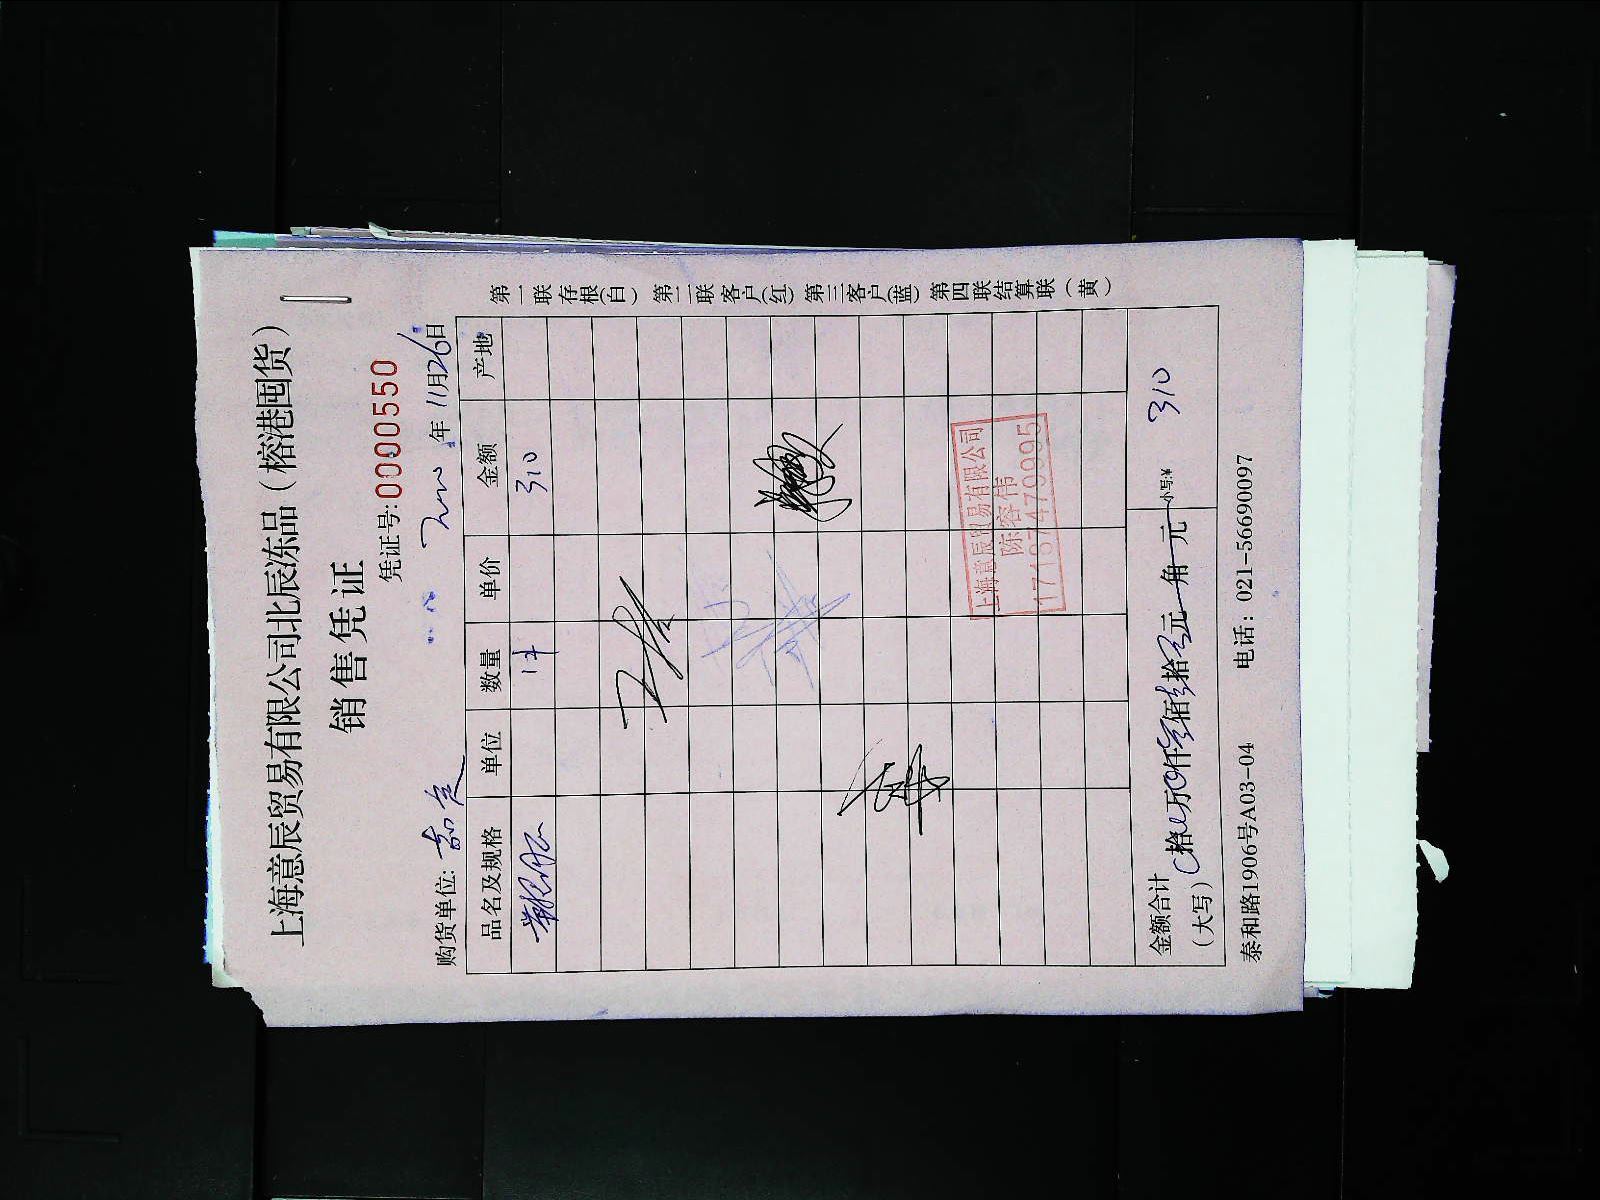 上海意辰贸易有限公司北辰冻品（榕港囤货）
销售凭证
凭证号:0000550
购货单位: 年 11月26日
品名及规格 单位 数量 单价 金额 产地
1件 310
上海意辰贸易有限公司
陈容伟
17187479995
金额合计
（大写） 拾 万 仟 佰 拾 元 角 元 小写:¥ 310
泰和路1906号A03-04 电话：021-56690097
第一联存根(白) 第二联客户(红) 第三客户(蓝) 第四联结算联（黄）